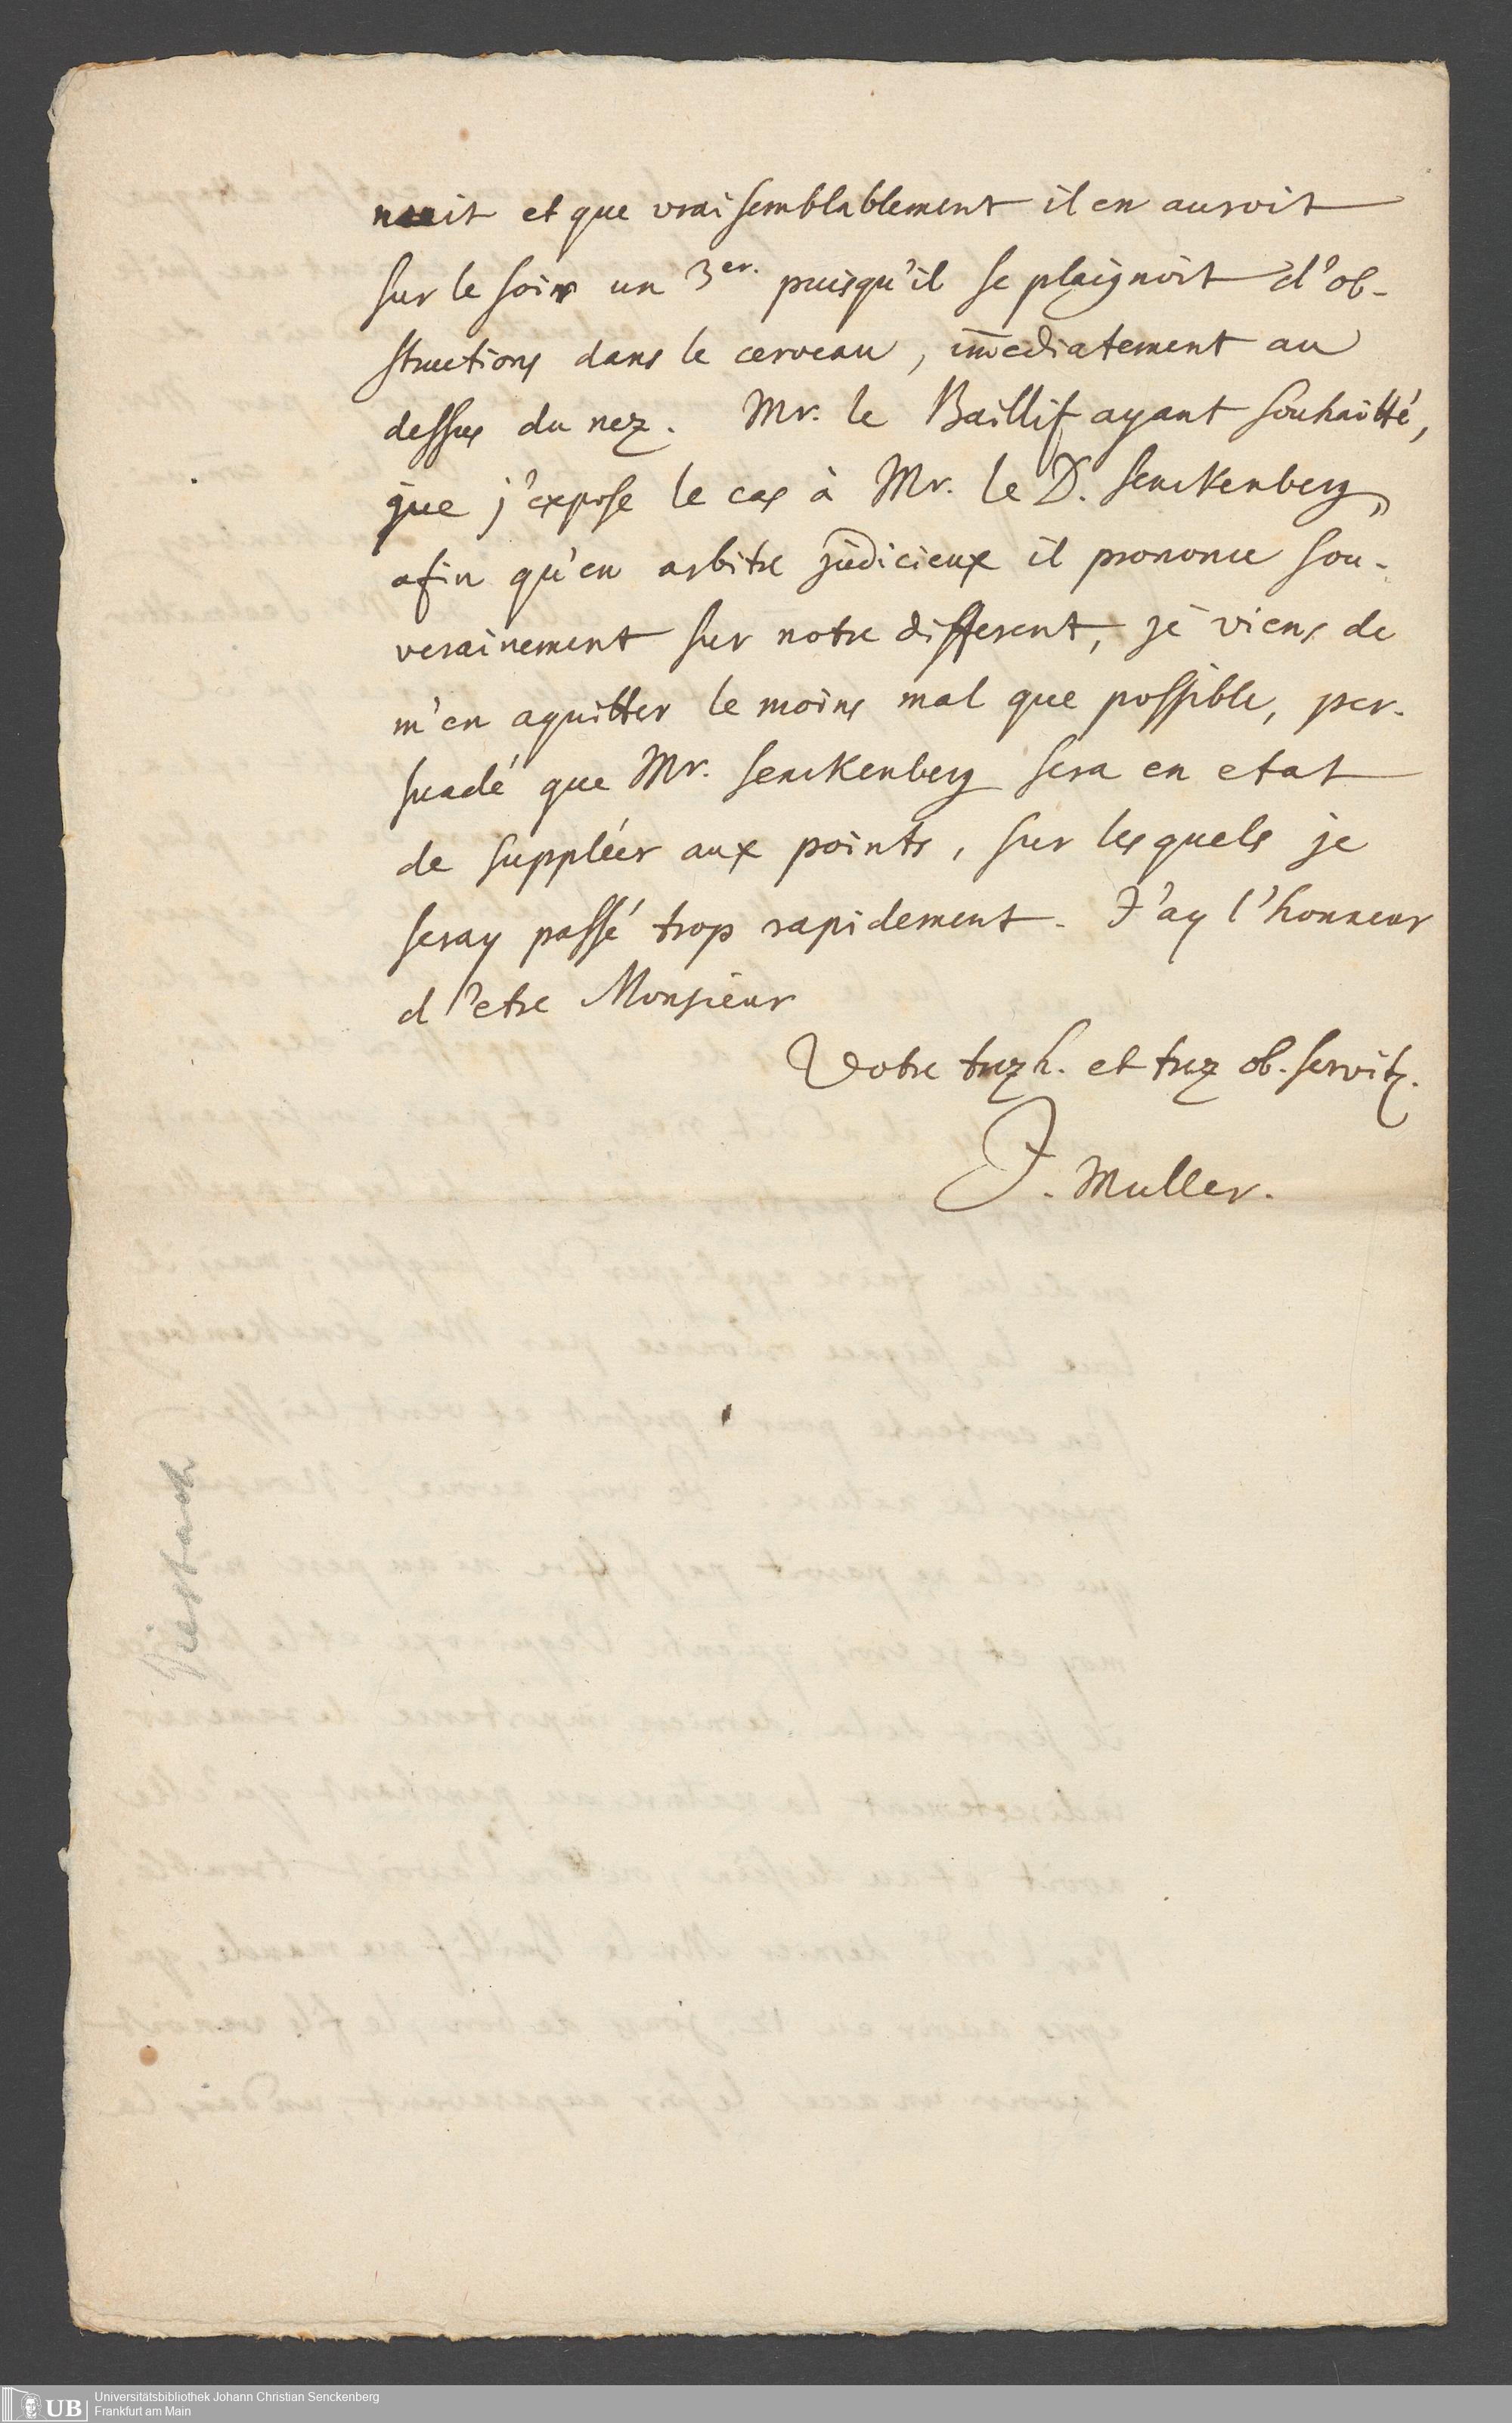 nuit et que vraisemblablement il en auroit
sur le soir un 3er. puisqu'il se plaignoit d'ob-
structions dans le cerveau, im̅ediatement au
dessus du nez. Mr. le Baillif ayant souhaitté,
que j'expose le cas à Mr. le D. Senckenberg,
afin qu'en arbitre judicieux il prononce sou-
verainement sur notre different, je viens de
m'en aquitter le moins mal que possible, per-
suadé que Mr. Senckenberg sera en etat
de suppléer aux points, sur lesquels je
seray passé trop rapidement. J'ay l'honneur
d'etre Monsieur
Votre trez h. et trez ob. servit.
J. Muller.
Universitätsbibliothek Johann Christian Senckenberg
UB
Frankfurt am Main